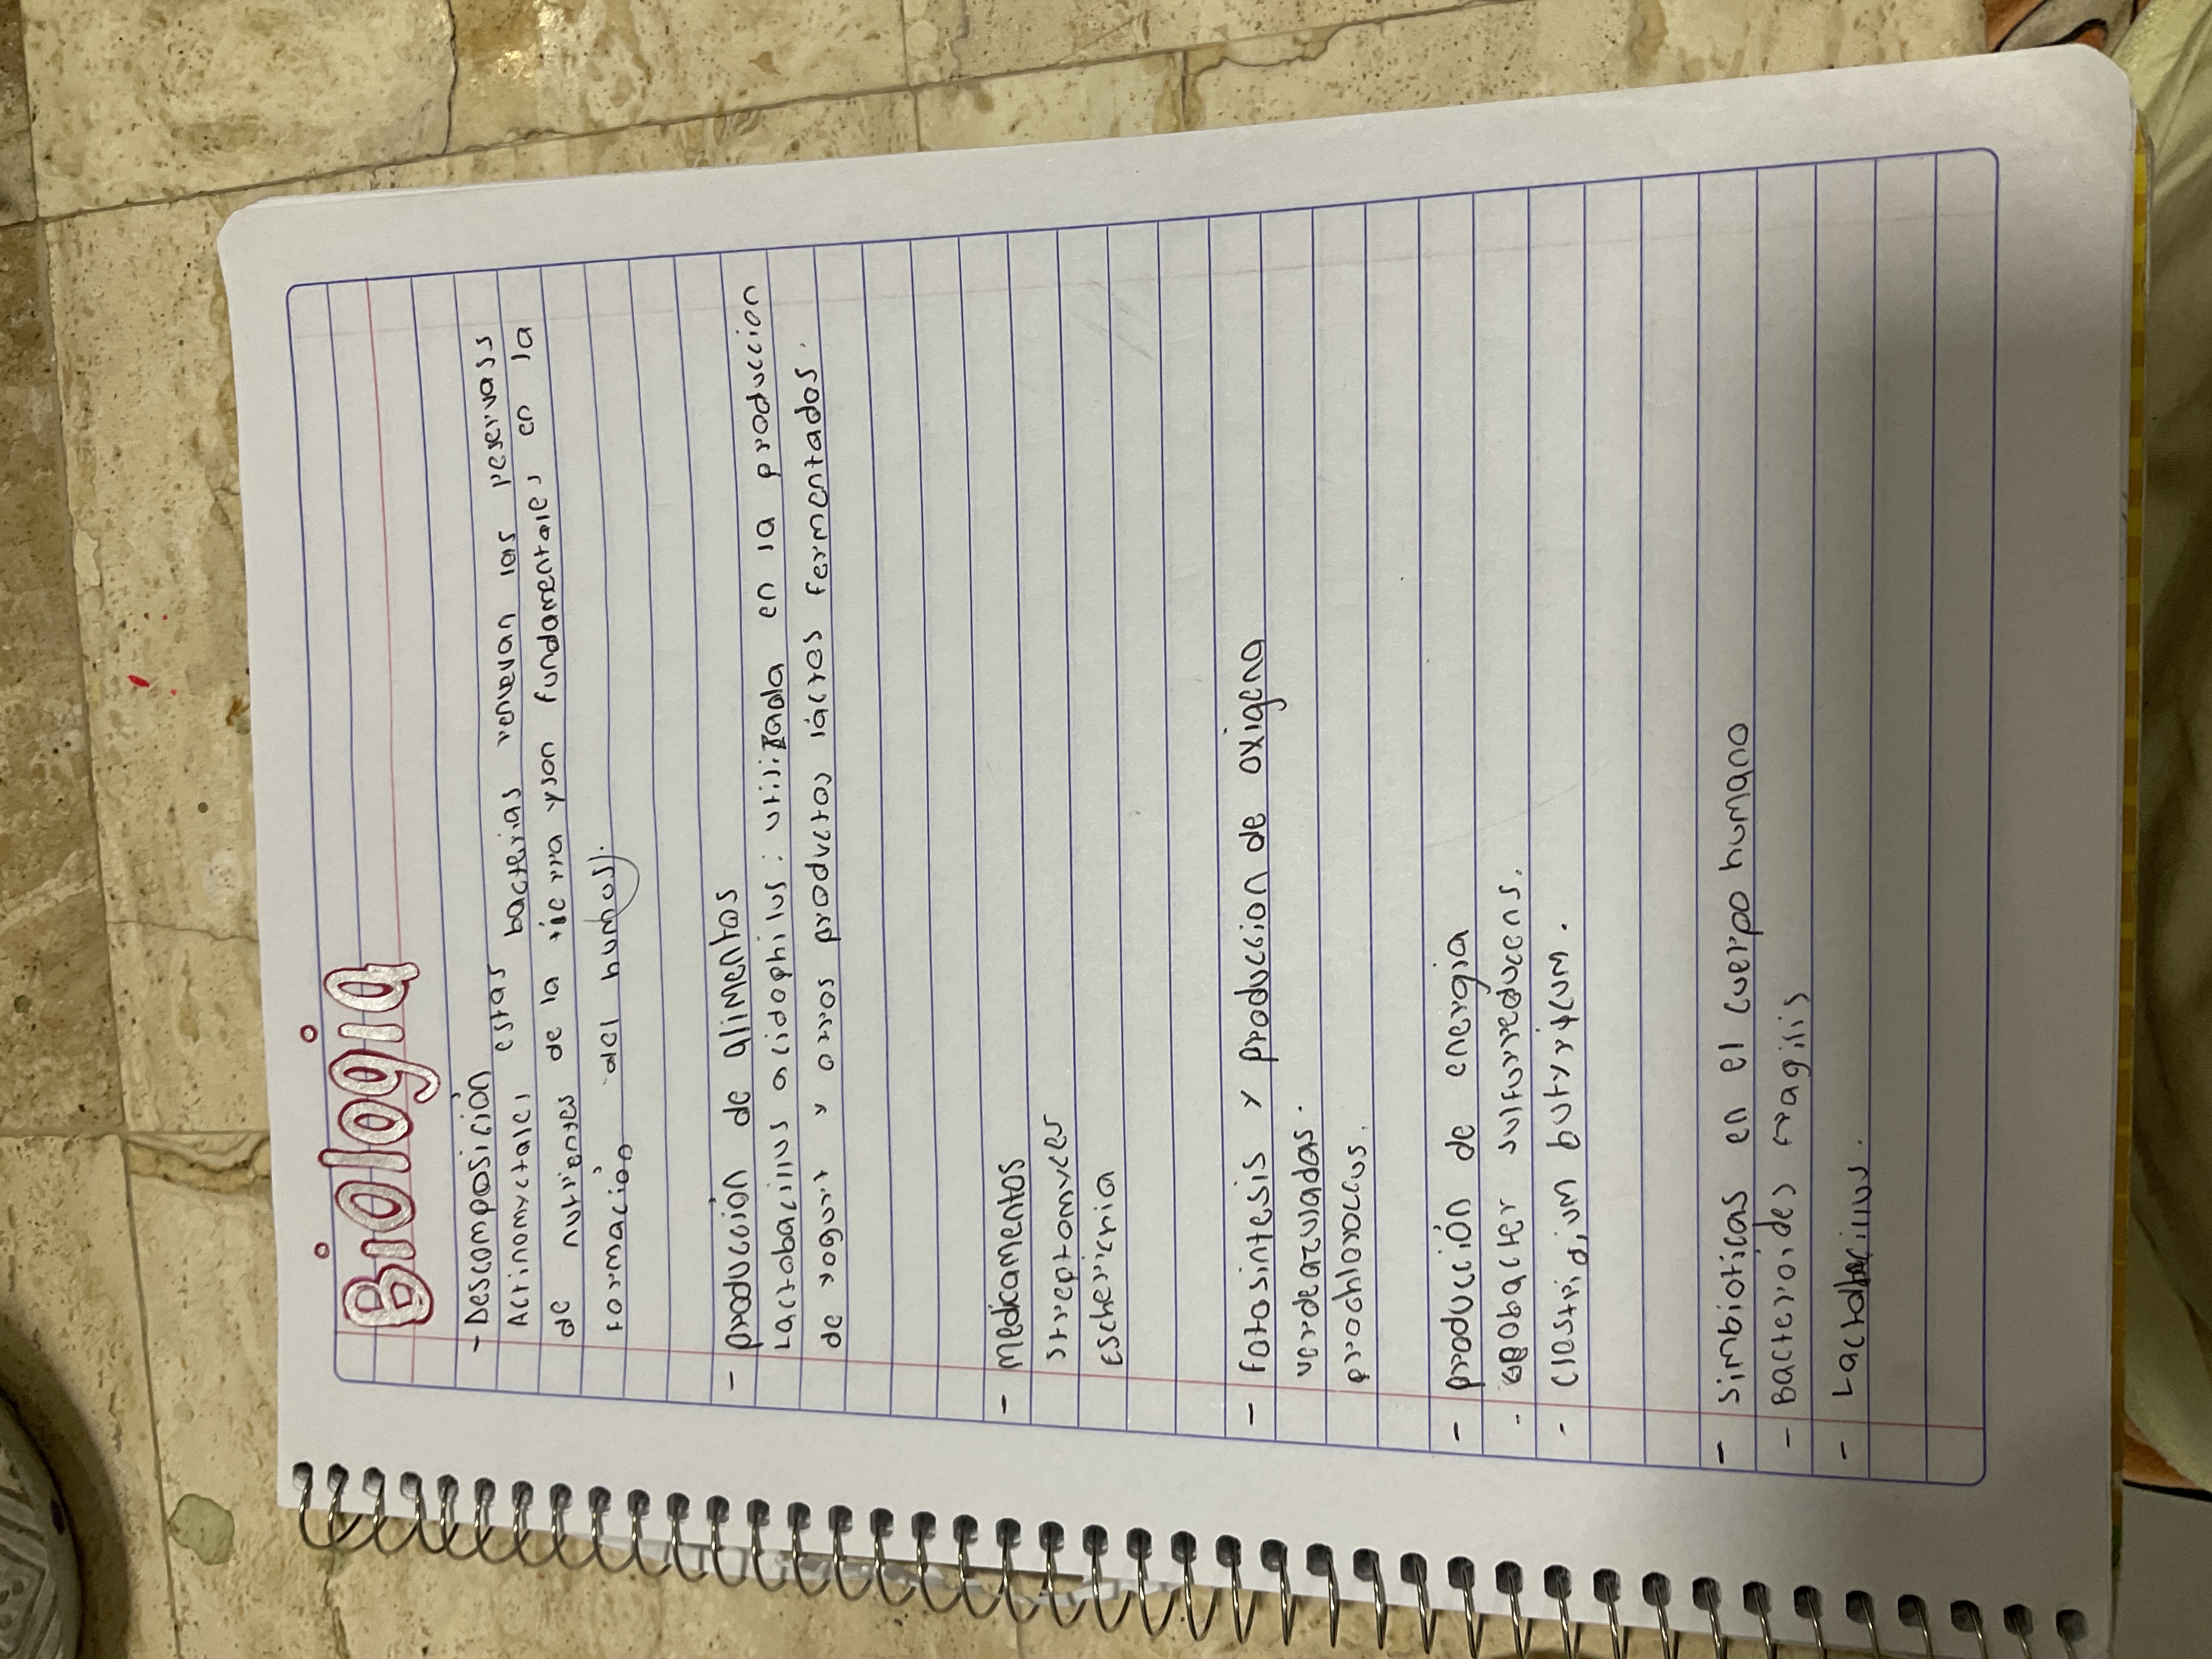 Biologia
- Descomposición
Actinomycetales estas bacterias renevan las reservass
de nutrientes de la tierra y son fundamentales en la
formación del humos).
- producción de alimentos
Lactrobacillus acidophilus: utilizada en la produccion
de yogurt y otros productos lácteos fermentados.
- Medicamentos
streptomyces
Eschericria
- Fotosintesis y produccion de oxigeno
verdeazuladas.
proochlorococcus.
- producción de energia
- geobacter sulfurreducens.
- Clostridium butyricum.
- Simbioticas en el cuerpo humano
- Bacteroides fragilis
- Lactobacillus.